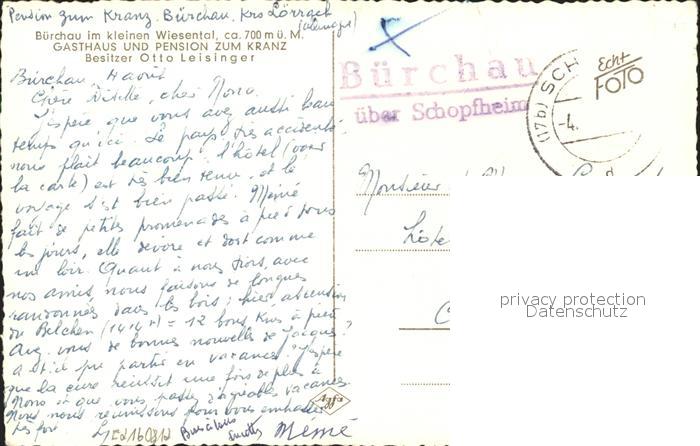 Pension zum Kranz. Bürchau, Krs Lörrach
(Allemagne)
Bürchau im kleinen Wiesental, ca. 700 m ü. M.
GASTHAUS UND PENSION ZUM KRANZ
Besitzer Otto Leisinger
Bürchau, 4 avril
Chère Gisèle, cher Nono.
J'espère que vous avez aussi beau
temps qu'ici. Le pays très accidenté
nous plaît beaucoup; l'hôtel (voir
la carte) est très bien tenu, et le
voyage s'est bien passé. Mémé
fait de petites promenades à pied tous
les jours, elle dévore et dort comme
un loir. Quant à nous trois, avec
nos amis, nous faisons de longues
randonnées dans les bois; hier ascension
du Belchen (1414 m) = 12 bons kms à pied
Avez-vous de bonnes nouvelles de Jacques?
a-t-il pu partir en vacances? J'espère
que la cure réussit une fois de plus à
Nono et que vous passez d'agréables vacances.
Nous nous réunissons pour vous embrasser
très fort.
Bons baisers
Mémé
Bürchau
über Schopfheim
(17b) SCH
-4.
Echt
FOTO
Monsieur
Agfa
privacy protection
Datenschutz